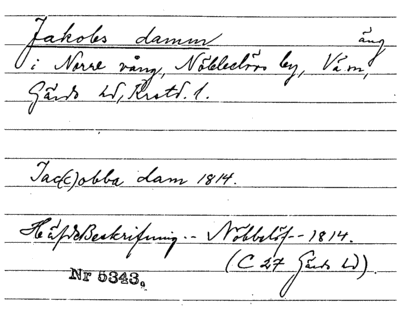 Jakobs damm äng
i Norre vång, Nöbbelövs by, Vä sn,
Gärds hd, Krstd. l.
Jac(c)obba dam 1814.
HäfdeBeskrifning -- Nöbbelöf -- 1814.
(C 27 Gärds hd).
Nr 5343.